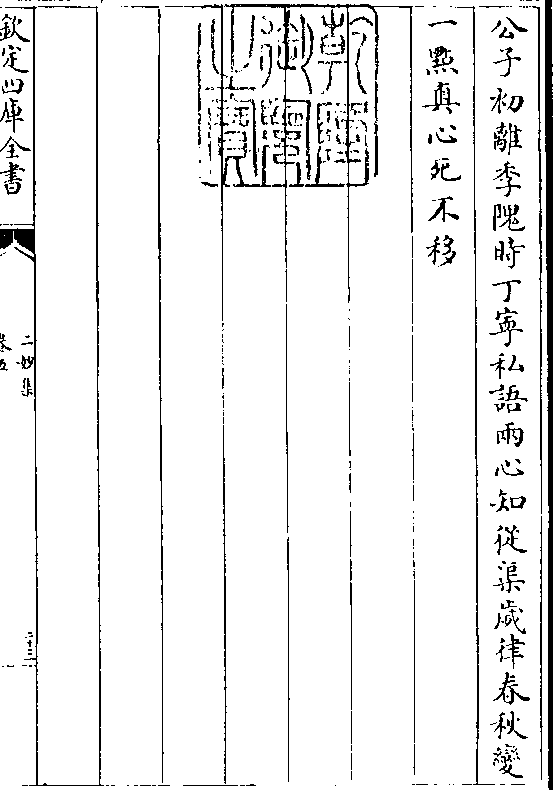 公子初離季隗時丁寧私語兩心知從渠歲律春秋變
一點真心死不移
乾隆御覽之寶
欽定四庫全書
二妙集
卷五
二十三